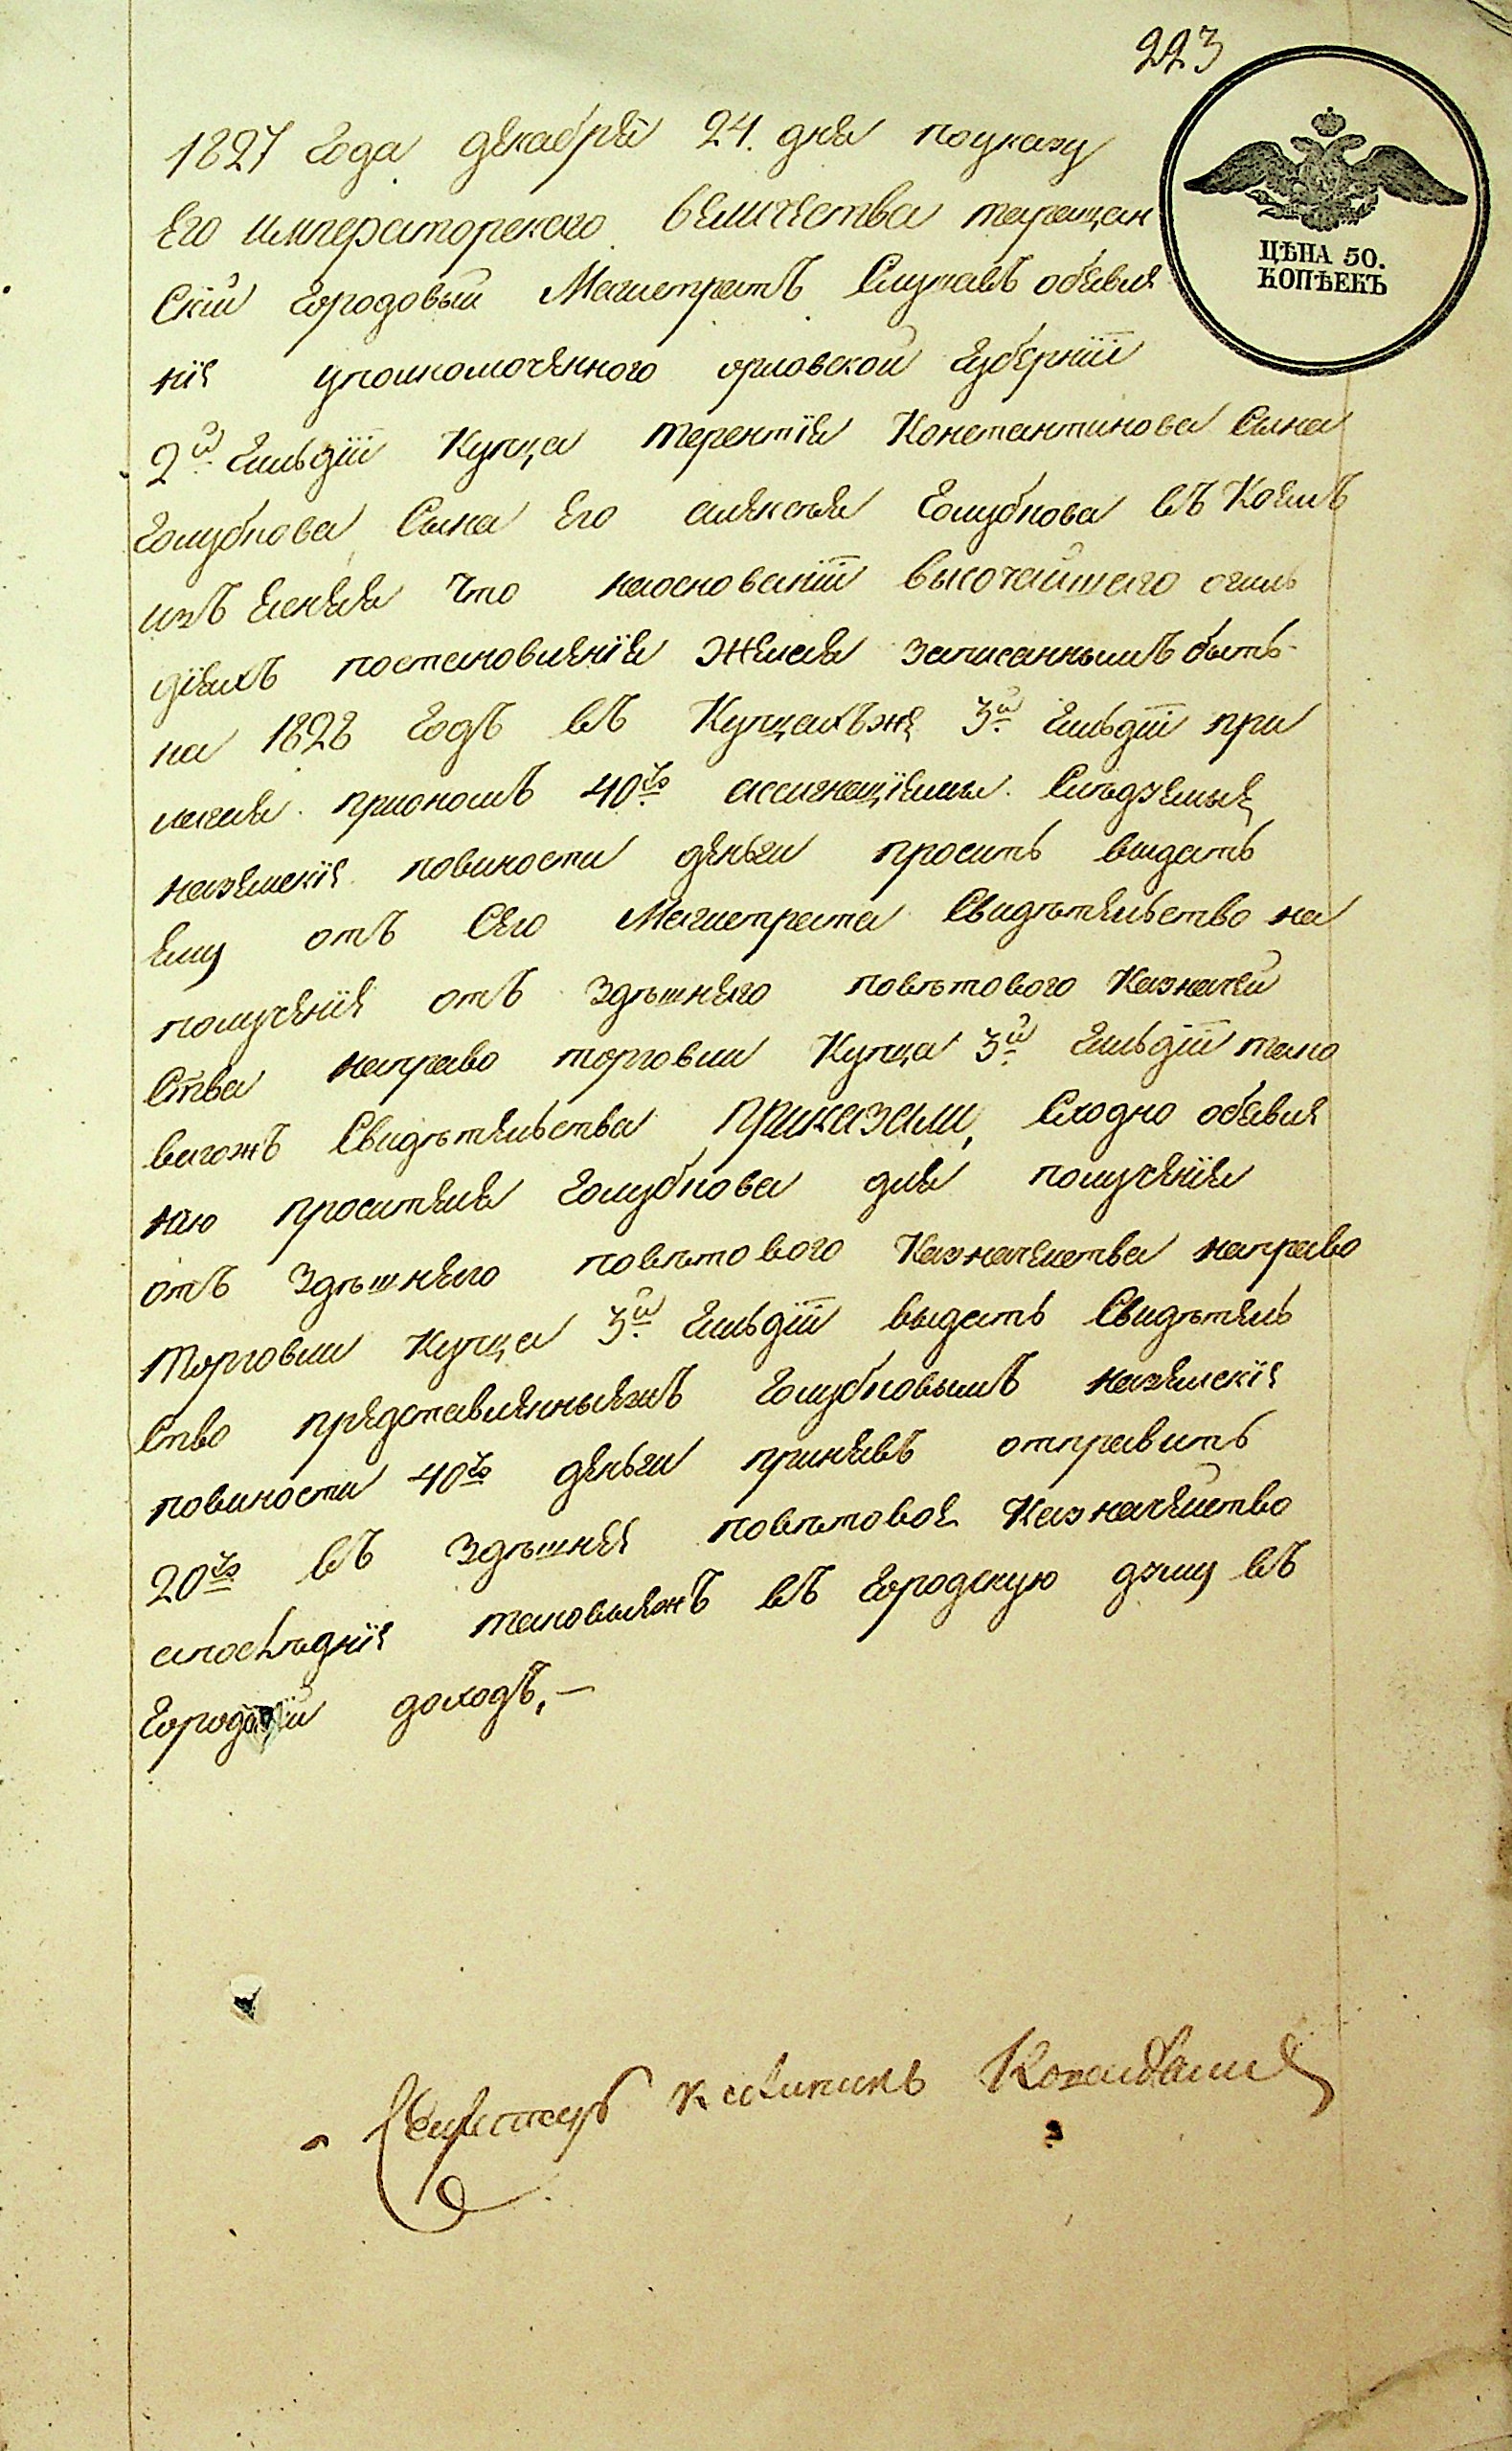 223
ЦѢНА 50.
КОПѢЕКЪ
1827 Года декабря 24. дня поуказу
Его императорского величества таращан
Скій Городовый Магистратъ Слушавъ объявле
ніе уполномоченного орловской Губерніи
2й Гильдіи Купца терентія Константинова Сына
Голубкова Сына Его алексея Голубкова въ Коемъ
изъясняя что наоснованіи высочайшаго огиль
діяхъ постановленія Желая записаннымъ быть
на 1828 Годъ въ Купцахъже 3й Гильдіи при
лагая приономъ 40ру ассигнаціями Слѣдуемые
наземскіе повиности деньги просить выдать
ему отъ Сего Магистрата Свидѣтельство на
полученіе отъ Здѣшнего повѣтового Казначей
Ства направо торговли Купца 3й Гильдіи тако
вагожъ Свидѣтельства Приказали, Сходно объявле
нію просителя Голубкова для полученія
отъ Здѣшнего повѣтового Казначейства направо
Торговли Купца 3й Гильдіи выдать Свидѣтель
Ство представленныежъ Голубковымъ наземскіе
повиности 40ру деньги принявъ отправить
20ру въ Здѣшнее повѣтовое Казначейство
апослѣдніе таковыежъ въ Городскую думу въ
Городскій доходъ. —